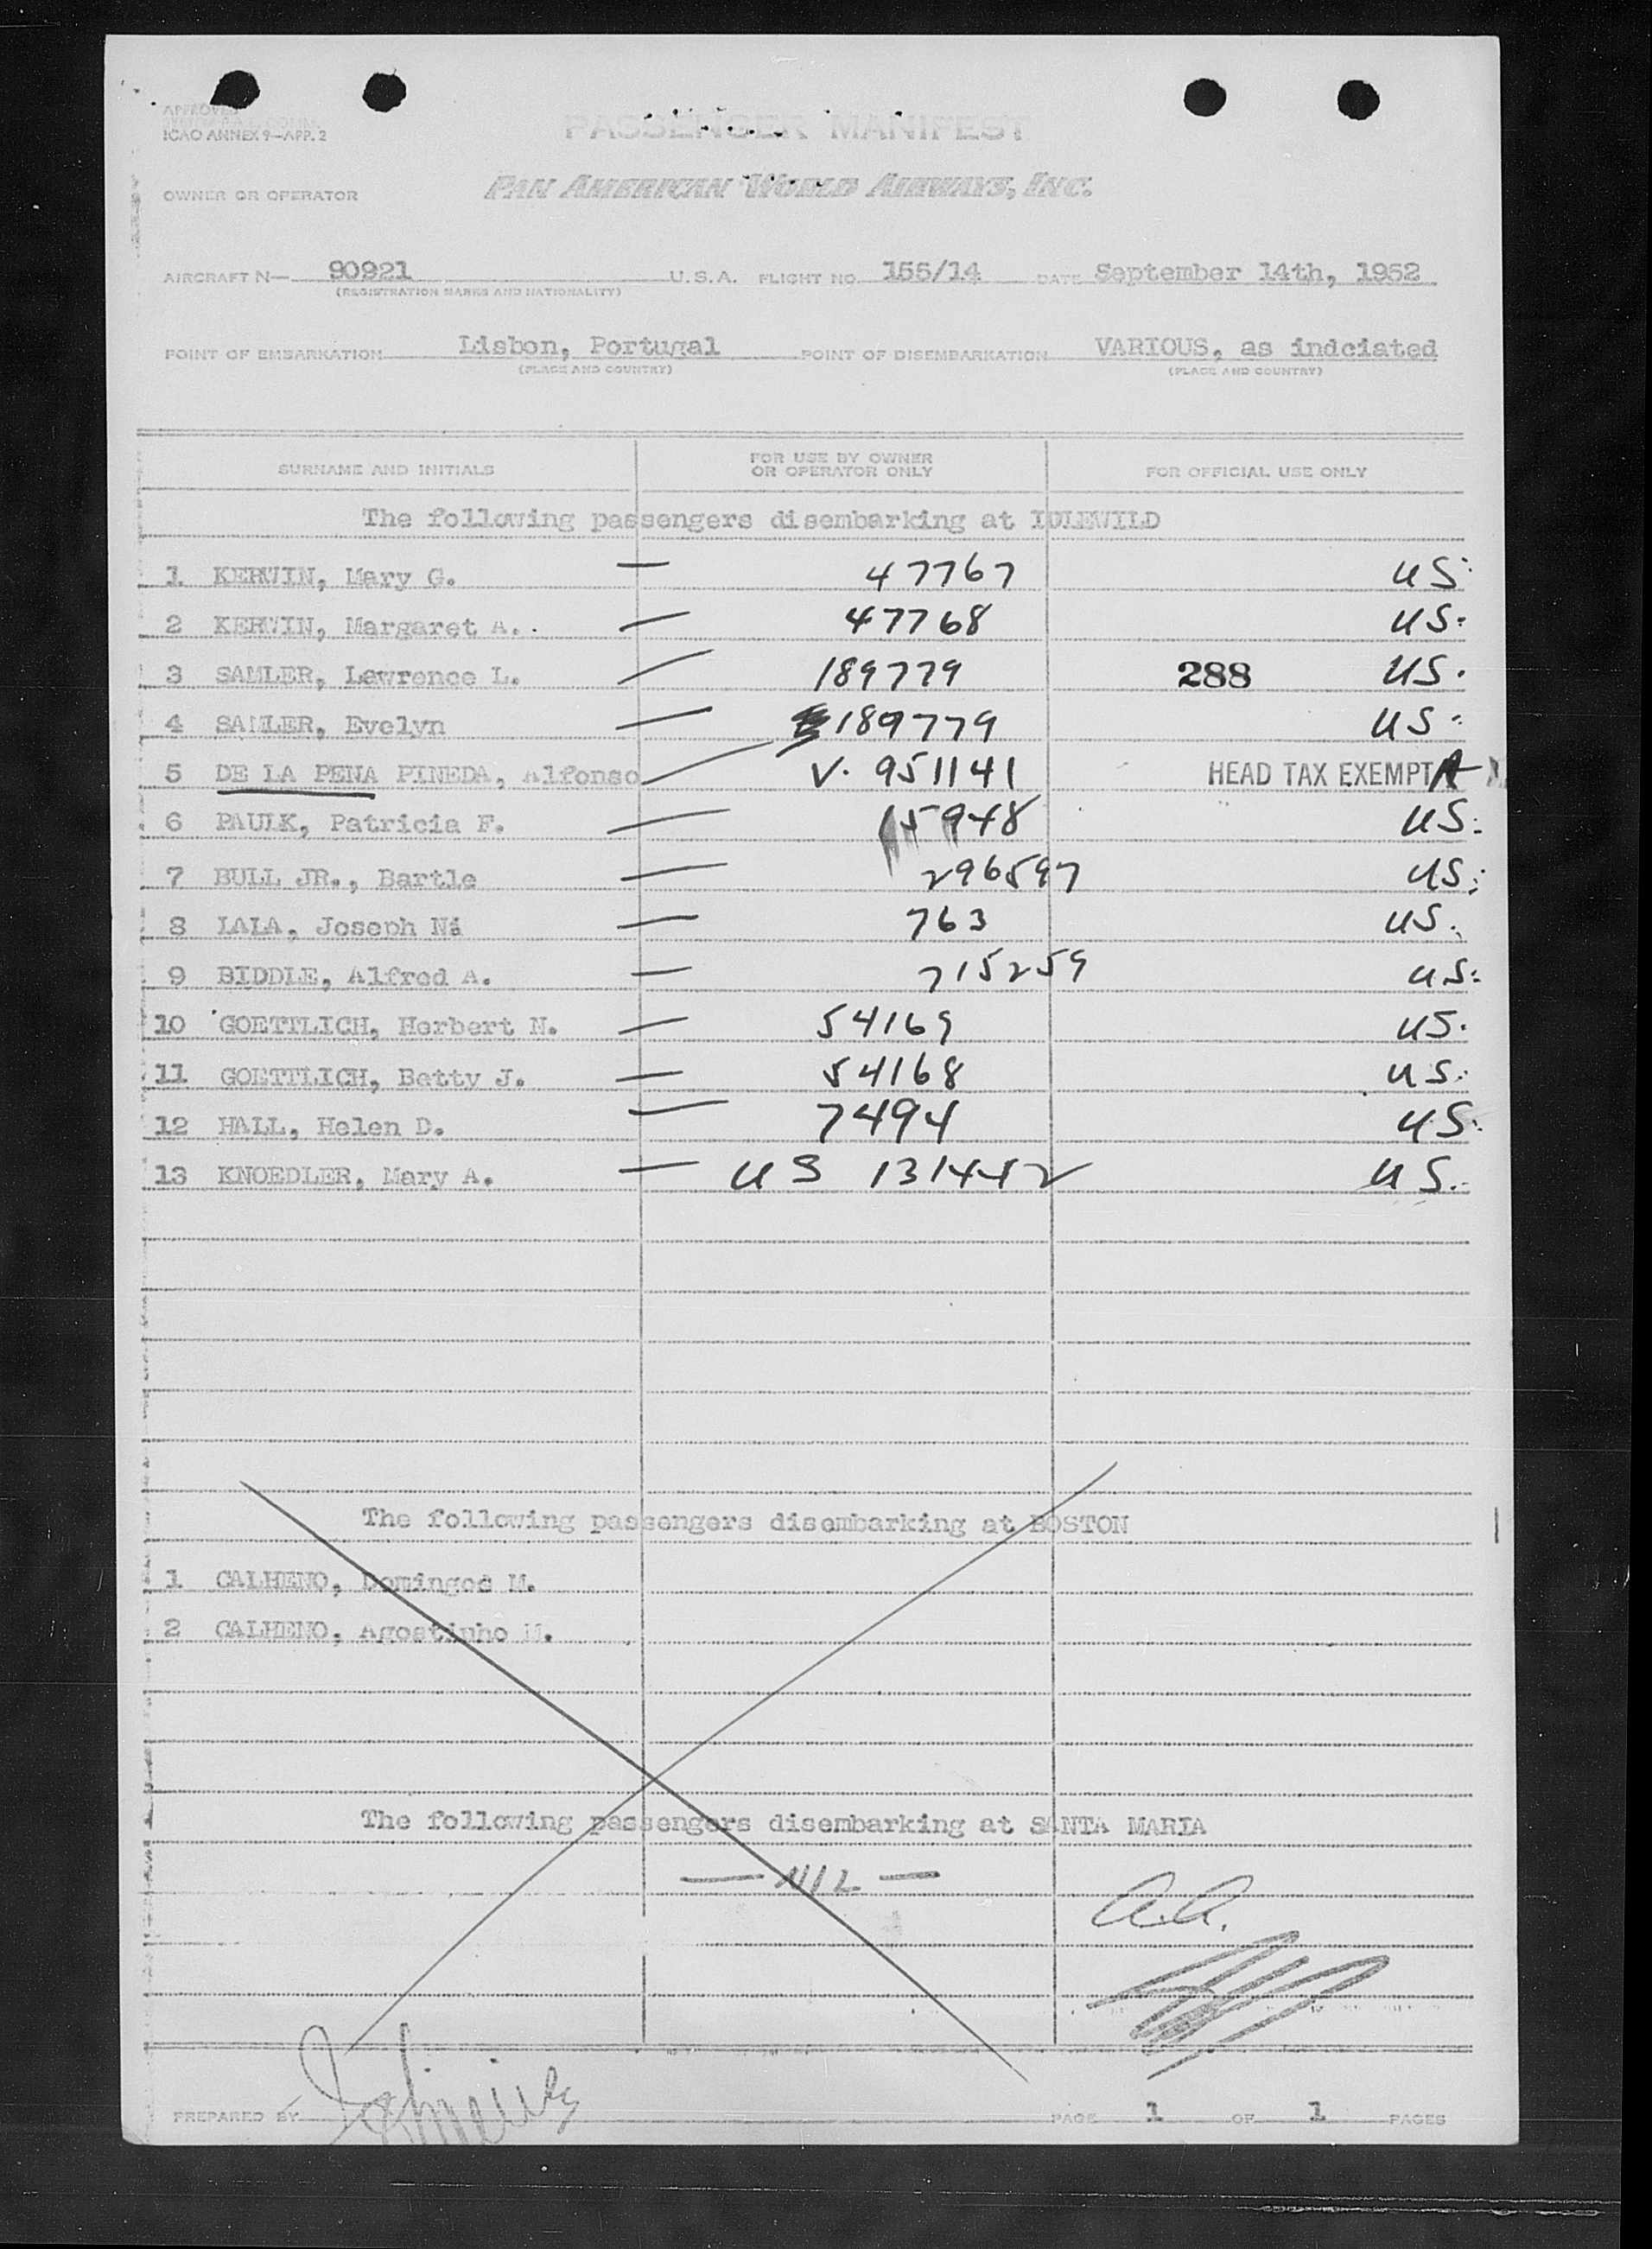 APPROVED
ICAO ANNEX 9—APP. 2
PASSENGER MANIFEST
OWNER OR OPERATOR PAN AMERICAN WORLD AIRWAYS, INC.
AIRCRAFT N— 90921 U.S.A. FLIGHT NO. 155/14 DATE September 14th, 1952
(REGISTRATION MARKS AND NATIONALITY)
POINT OF EMBARKATION Lisbon, Portugal POINT OF DISEMBARKATION VARIOUS, as indciated
(PLACE AND COUNTRY) (PLACE AND COUNTRY)
SURNAME AND INITIALS FOR USE BY OWNER OR OPERATOR ONLY FOR OFFICIAL USE ONLY
The following passengers disembarking at IDLEWILD
1 KERWIN, Mary G. — 47767 US.
2 KERWIN, Margaret A. — 47768 US.
3 SAMLER, Lawrence L. — 189779 288 US.
4 SAMLER, Evelyn — 189779 US.
5 DE LA PENA PINEDA, Alfonso — V. 951141 HEAD TAX EXEMPT A
6 PAULK, Patricia F. — 15948 US.
7 BULL JR., Bartle — 296597 US.
8 LALA, Joseph — 763 US.
9 BIDDLE, Alfred A. — 715259 US.
10 GOETTLICH, Herbert N. — 54169 US.
11 GOETTLICH, Betty J. — 54168 US.
12 HALL, Helen D. — 7494 US.
13 KNOEDLER, Mary A. — US 131442 US.
The following passengers disembarking at BOSTON
1 CALHENO, Domingos M.
2 CALHENO, Agostinho M.
The following passengers disembarking at SANTA MARIA
— NIL —
a.a.
PREPARED BY PAGE 1 OF 1 PAGES